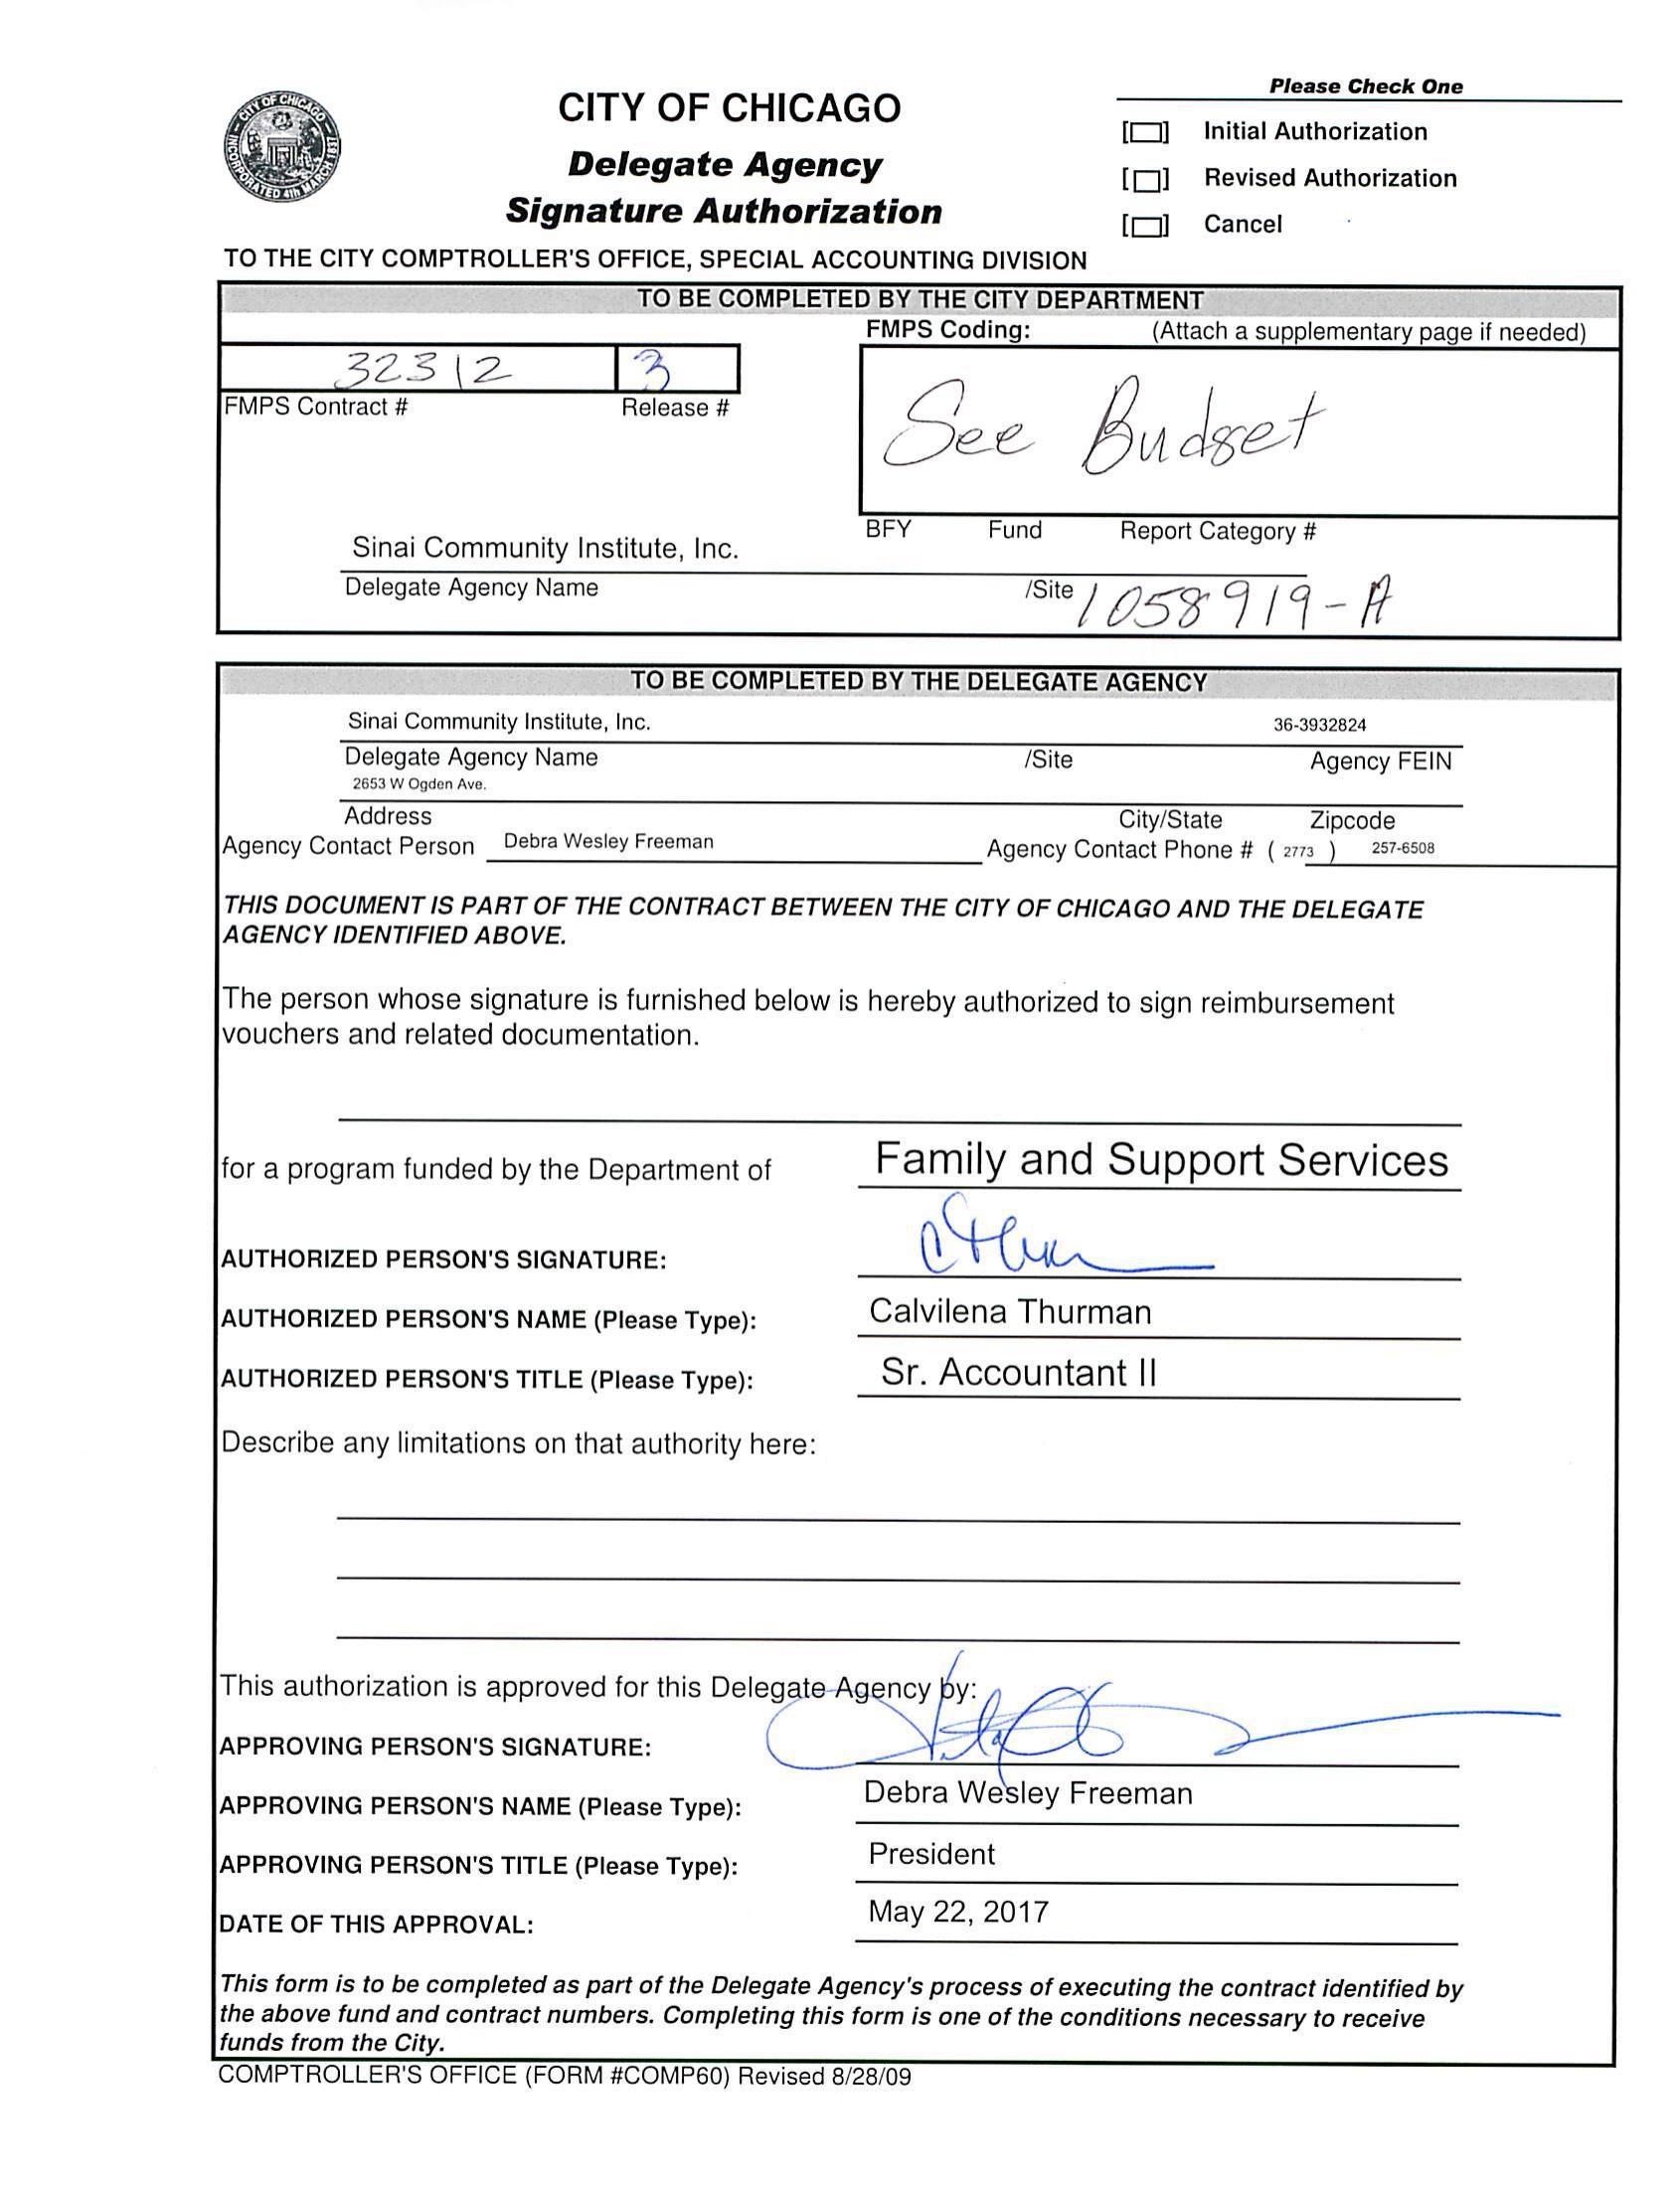 CITY OF CHICAGO
INCORPORATED 4th MARCH 1837
CITY OF CHICAGO
Delegate Agency
Signature Authorization
Please Check One
[ ] Initial Authorization
[ ] Revised Authorization
[ ] Cancel
TO THE CITY COMPTROLLER'S OFFICE, SPECIAL ACCOUNTING DIVISION
TO BE COMPLETED BY THE CITY DEPARTMENT
FMPS Coding: (Attach a supplementary page if needed)
32312 3
FMPS Contract # Release #
See Budget
BFY Fund Report Category #
Sinai Community Institute, Inc.
Delegate Agency Name /Site 1058919-A
TO BE COMPLETED BY THE DELEGATE AGENCY
Sinai Community Institute, Inc. 36-3932824
Delegate Agency Name /Site Agency FEIN
2653 W Ogden Ave.
Address City/State Zipcode
Agency Contact Person Debra Wesley Freeman Agency Contact Phone # ( 2773 ) 257-6508
THIS DOCUMENT IS PART OF THE CONTRACT BETWEEN THE CITY OF CHICAGO AND THE DELEGATE
AGENCY IDENTIFIED ABOVE.
The person whose signature is furnished below is hereby authorized to sign reimbursement
vouchers and related documentation.
for a program funded by the Department of Family and Support Services
AUTHORIZED PERSON'S SIGNATURE:
AUTHORIZED PERSON'S NAME (Please Type): Calvilena Thurman
AUTHORIZED PERSON'S TITLE (Please Type): Sr. Accountant II
Describe any limitations on that authority here:
This authorization is approved for this Delegate Agency by:
APPROVING PERSON'S SIGNATURE:
APPROVING PERSON'S NAME (Please Type): Debra Wesley Freeman
APPROVING PERSON'S TITLE (Please Type): President
DATE OF THIS APPROVAL: May 22, 2017
This form is to be completed as part of the Delegate Agency's process of executing the contract identified by
the above fund and contract numbers. Completing this form is one of the conditions necessary to receive
funds from the City.
COMPTROLLER'S OFFICE (FORM #COMP60) Revised 8/28/09